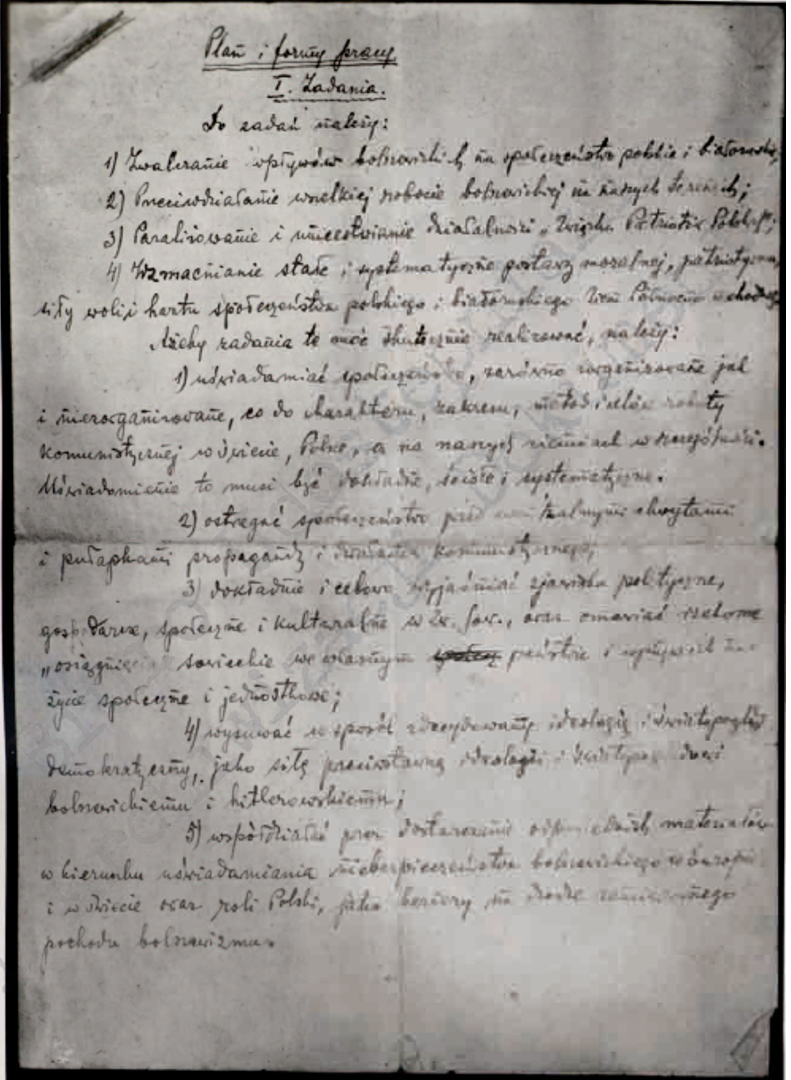 Plan i formy pracy
I. Zadania.
Do zadań należy:
1) Zwalczanie wpływów bolszewickich na społeczeństwo polskie i białoruskie;
2) Przeciwdziałanie wszelkiej robocie bolszewickiej na naszych terenach;
3) Paraliżowanie i unicestwianie działalności „Związku Patriotów Polskich";
4) Wzmacnianie stałe i systematyczne postawy moralnej, patriotyzmu,
siły woli i hartu społeczeństwa polskiego i białoruskiego Ziem Północno wschodnich
Ażeby zadania te móc skutecznie realizować, należy:
1) uświadamiać społeczeństwo, zarówno zorganizowane jak
i niezorganizowane, co do charakteru, zakresu, metod i celów roboty
komunistycznej w świecie, Polsce, a na naszych ziemiach w szczególności.
Uświadomienie to musi być dokładne, ścisłe i systematyczne.
2) ostrzegać społeczeństwo przed chwytami
i pułapkami propagandy i działania komunistycznego;
3) dokładnie i celowo wyjaśniać zjawiska polityczne,
gospodarcze, społeczne i kulturalne w Zw. Sow., oraz omawiać rzekome
„osiągnięcia sowieckie we własnym państwie i w
życie społeczne i jednostkowe;
4) wysuwać w sposób zdecydowany ideologię i światopogląd
demokratyczny, jako siłę przeciwstawną ideologii i światopoglądowi
bolszewickiemu i hitlerowskiemu;
5) współdziałać przez dostarczanie odpowiednich materiałów
w kierunku uświadamiania niebezpieczeństwa bolszewickiego w Europie
i w świecie oraz roli Polski, jako bariery na drodze zamierzonego
pochodu bolszewizmu.